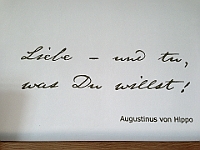 Liebe – und tu,
was Du willst!
Augustinus von Hippo